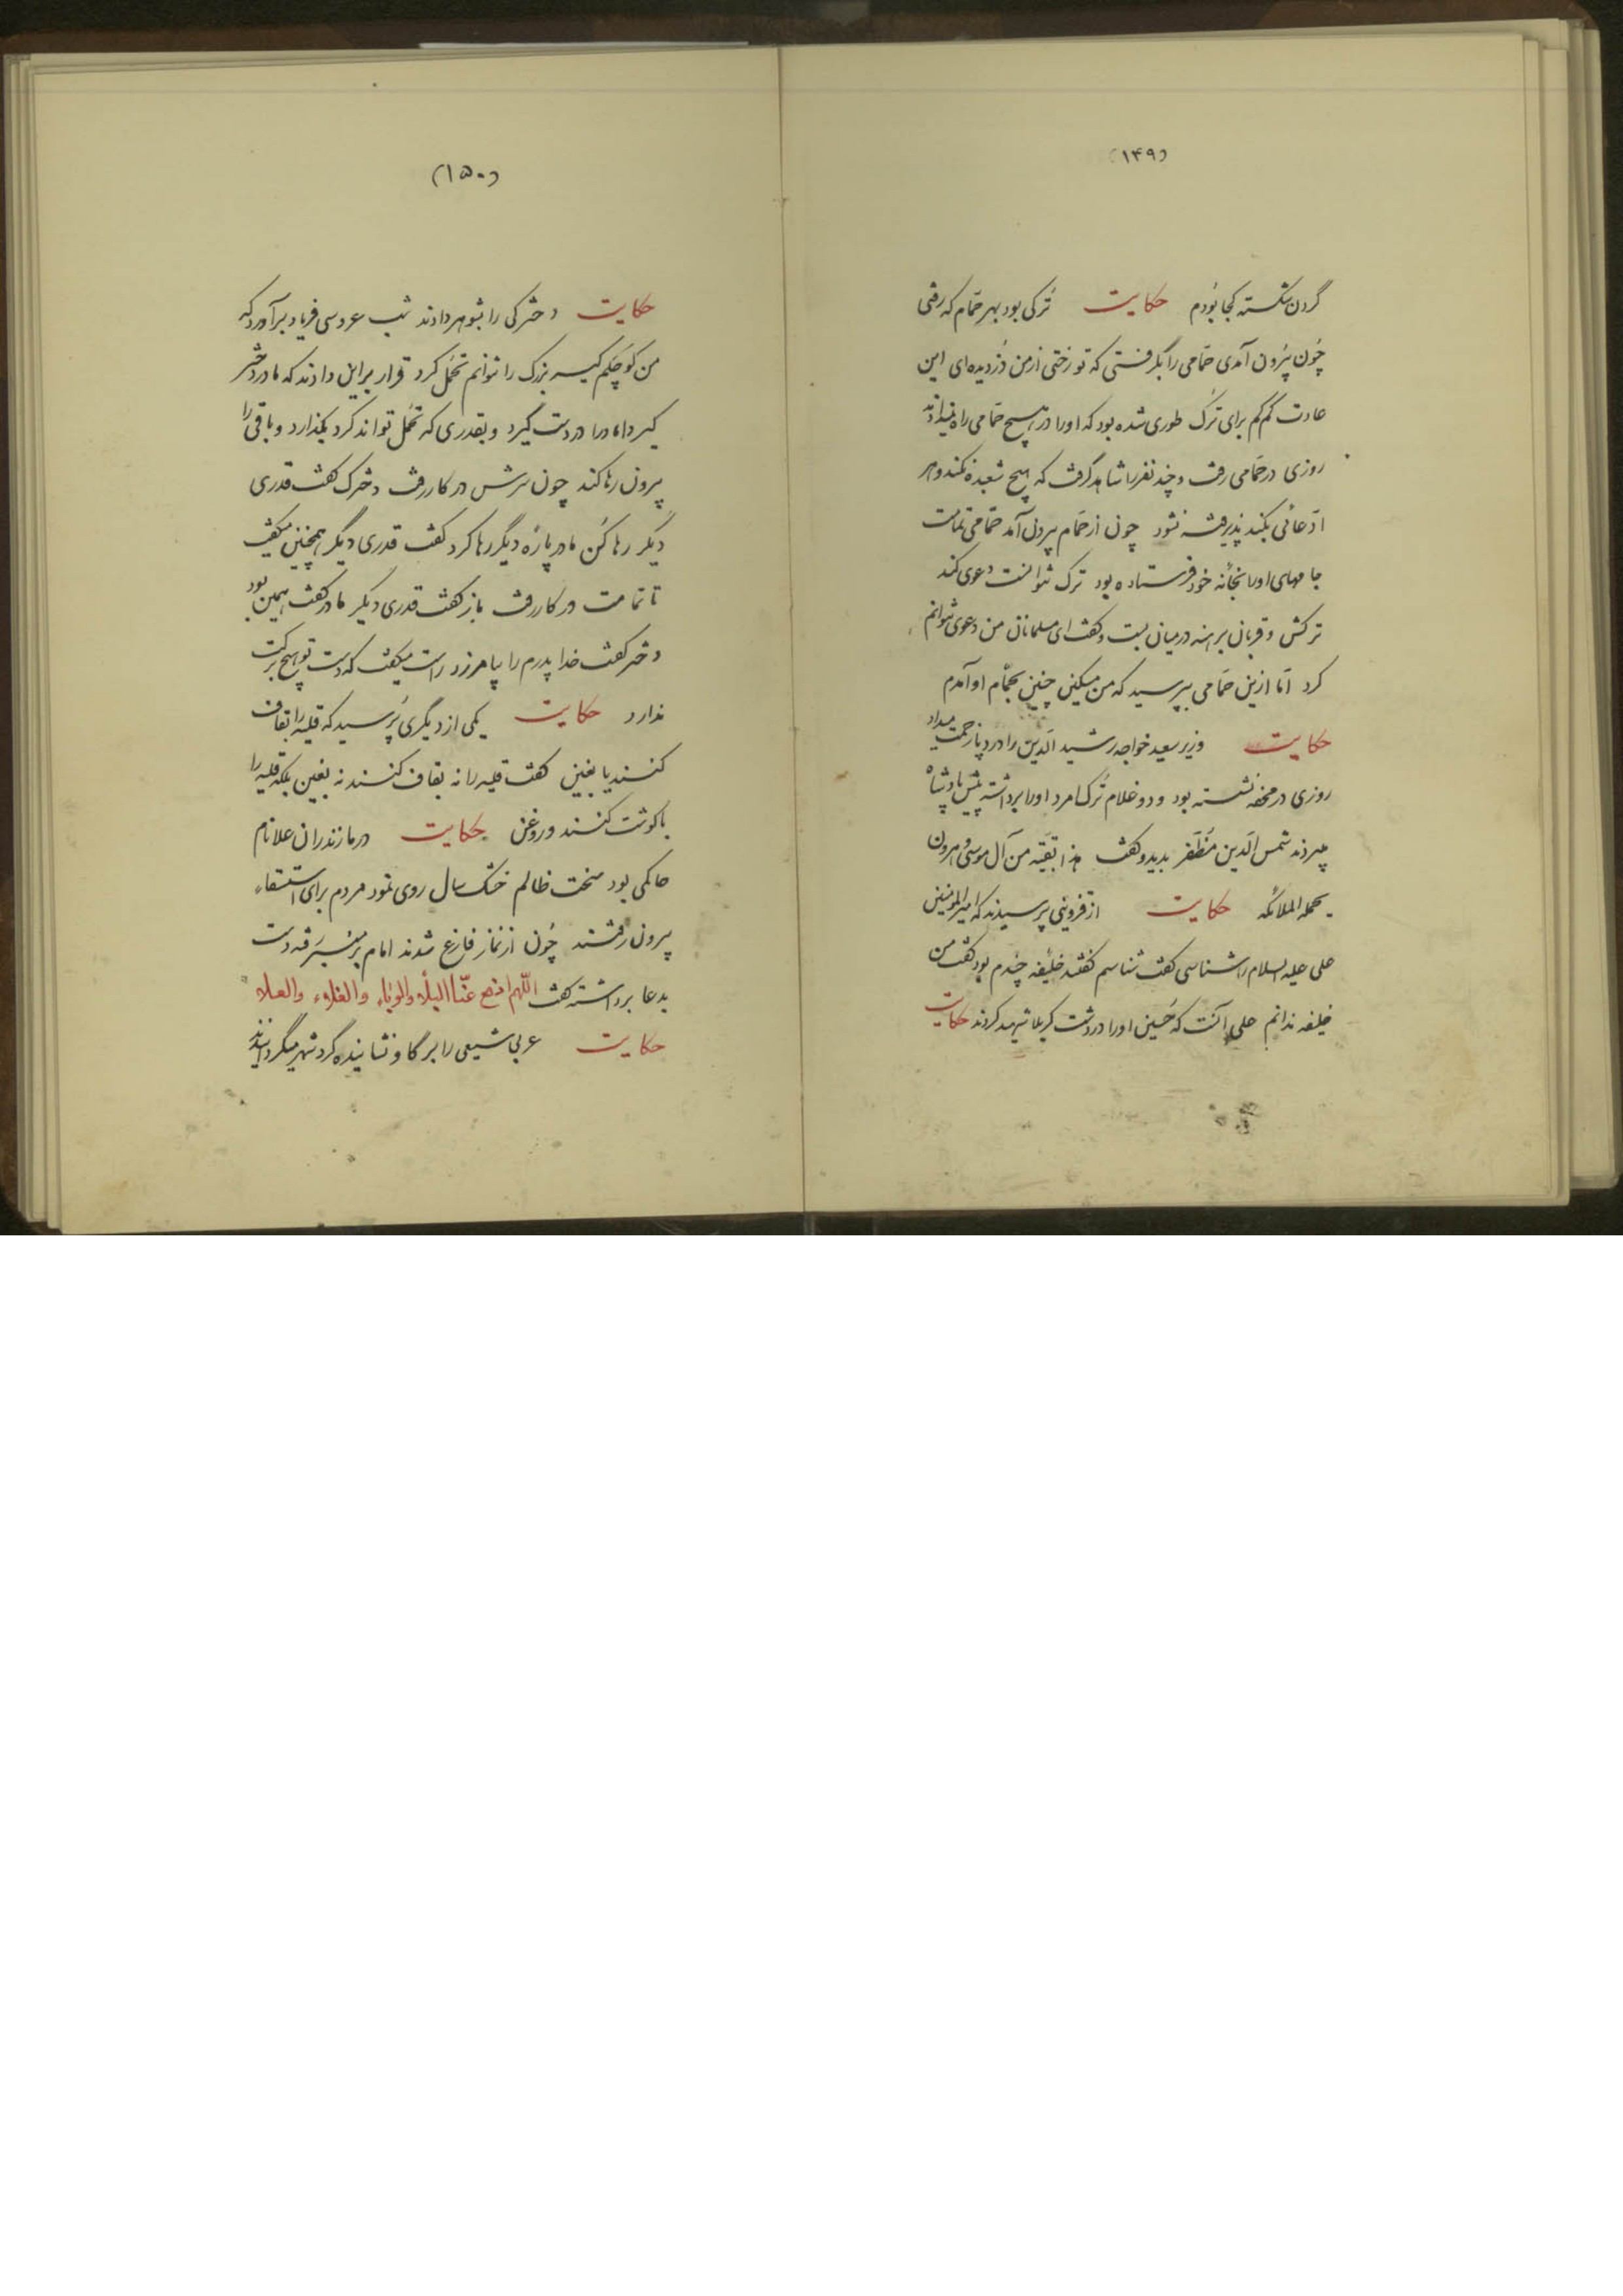 (۱۴۹)
گردن شکسته کجا بودم حکایت ترکی بود بهر حمام که رفتی
چون بیرون آمدی حمامی را بگرفتی که تو رختی از من دزدیده‌ای این
عادت کم کم برای ترک طوری شده بود که او را در هیچ حمامی راه نمیدادند
روزی در حمامی رفت و چند نفر را شاهد گرفت که هیچ شعبده نکند و هر
ادعائی بکند پذیرفته نشود چون از حمام بیرون آمد حمامی تمامت
جامهای او را بخانه خود فرستاده بود ترک نتوانست دعوی کند
ترکش و قربان برهنه در میان بست و گفت ای مسلمانان من دعوی نتوانم
کرد اما ازین حمامی بپرسید که من مسکین چنین بحمام او آمدم
حکایت وزیر سعید خواجه رشید الدین را درد پا زحمت میداد
روزی در محفه نشسته بود و دو غلام ترک امرد او را برداشته پیش پادشاه
میبردند شمس الدین مظفر بدید و گفت هذا بقیه من آل موسی و هرون
یحمله الملائکه حکایت از قزوینی پرسیدند که امیر المومنین
علی علیه السلام را شناسی گفت شناسم گفتند خلیفه چندم بود گفت من
خلیفه ندانم علی آنست که حسین او را در دشت کربلا شهید کردند حکایت
(۱۵۰)
حکایت دخترکی را بشوهر دادند شب عروسی فریاد برآورد که
من کوچکم کیر بزرک را نتوانم تحمل کرد قرار بر این دادند که مادر دختر
کیر داماد را در دست گیرد و بقدری که تحمل تواند کرد بگذارد و باقی را
بیرون رها کند چون سرش در کار رفت دخترک گفت قدری
دیگر رها کن مادر پاره دیگر رها کرد گفت قدری دیگر همچنین میگفت
تا تمامت در کار رفت باز گفت قدری دیگر مادر گفت همین بود
دختر گفت خدا پدرم را بیامرزد راست میگفت که دست تو هیچ برکت
ندارد حکایت یکی از دیگری پرسید که قلیه را بقاف
کنند یا بغین گفت قلیه را نه بقاف کنند نه بغین بلکه قلیه را
با گوشت کنند و روغن حکایت در مازندران علا نام
حاکمی بود سخت ظالم خشک سال روی نمود مردم برای استسقاء
بیرون رفتند چون از نماز فارغ شدند امام بر منبر رفته دست
بدعا برداشته گفت اللهم ادفع عنا البلاء والوباء والغلاء والعلاء
حکایت عربی شیعی را بر گاو نشانیده گرد شهر میگردانیدند